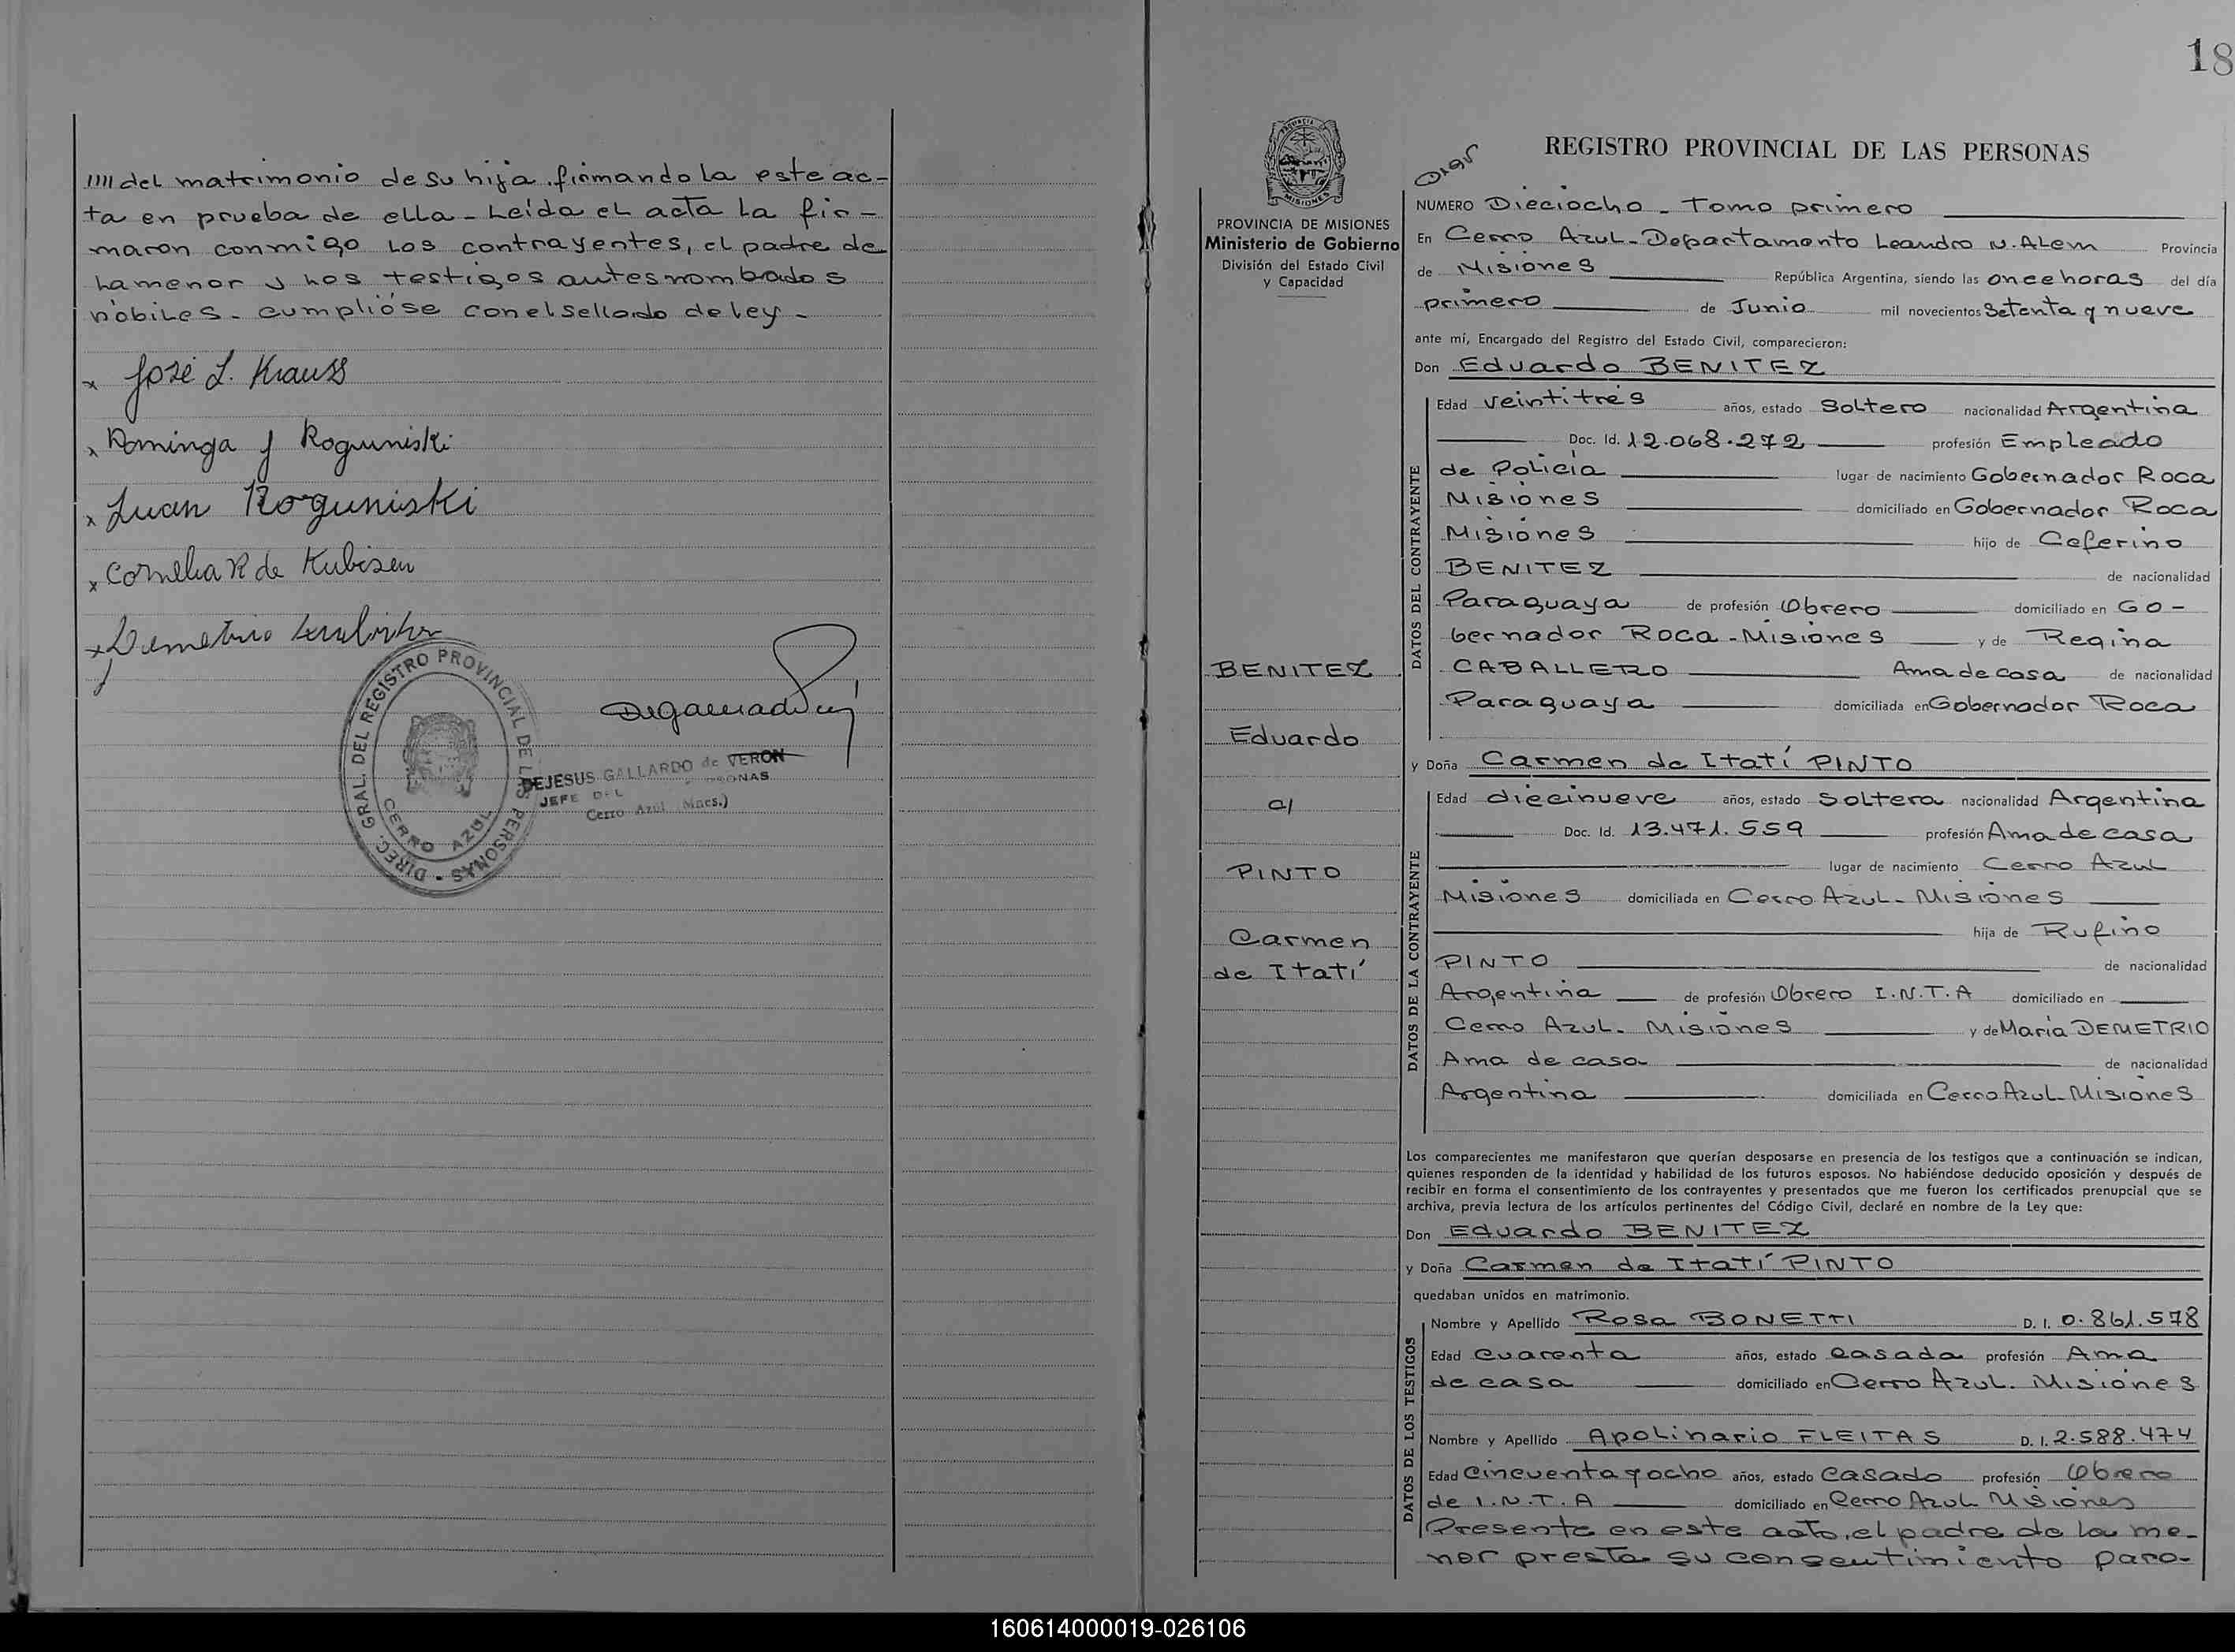 //// del matrimonio de su hija firmando la este ac-
ta en prueba de ella - Leída el acta la fir-
maron conmigo los contrayentes, el padre de
la menor y los testigos antes nombrados
nóbiles - cumplióse con el sellado de ley -
x José L. Krauss
x Dominga J Roguniski
x Juan Roguniski
x Cornelia R de Kubiszen
x Demetrio
DIREC. GRAL. DEL REGISTRO PROVINCIAL DE LAS PERSONAS -
CERRO AZUL
DEJESUS GALLARDO de VERON
JEFE DEL
Cerro Azul (Mnes.)
18
PROVINCIA DE MISIONES
Ministerio de Gobierno
División del Estado Civil
y Capacidad
BENITEZ
Eduardo
c/
PINTO
Carmen
de Itatí
REGISTRO PROVINCIAL DE LAS PERSONAS
NUMERO Dieciocho - Tomo primero
En Cerro Azul - Departamento Leandro N. Alem Provincia
de Misiones República Argentina, siendo las once horas del día
primero de Junio mil novecientos Setenta y nueve
ante mí, Encargado del Registro del Estado Civil, comparecieron:
Don Eduardo BENITEZ
DATOS DEL CONTRAYENTE
Edad veintitrés años, estado Soltero nacionalidad Argentina
Doc. Id. 12.068.272 profesión Empleado
de Policía lugar de nacimiento Gobernador Roca
Misiones domiciliado en Gobernador Roca
Misiones hijo de Ceferino
BENITEZ de nacionalidad
Paraguaya de profesión Obrero domiciliado en Go-
bernador Roca - Misiones y de Regina
CABALLERO Ama de casa de nacionalidad
Paraguaya domiciliada en Gobernador Roca
y Doña Carmen de Itatí PINTO
DATOS DE LA CONTRAYENTE
Edad diecinueve años, estado Soltera nacionalidad Argentina
Doc. Id. 13.471.559 profesión Ama de casa
lugar de nacimiento Cerro Azul
Misiones domiciliada en Cerro Azul - Misiones
hija de Rufino
PINTO de nacionalidad
Argentina de profesión Obrero I.N.T.A domiciliado en
Cerro Azul - Misiones y de María DEMETRIO
Ama de casa de nacionalidad
Argentina domiciliada en Cerro Azul - Misiones
Los comparecientes me manifestaron que querían desposarse en presencia de los testigos que a continuación se indican,
quienes responden de la identidad y habilidad de los futuros esposos. No habiéndose deducido oposición y después de
recibir en forma el consentimiento de los contrayentes y presentados que me fueron los certificados prenupcial que se
archiva, previa lectura de los artículos pertinentes del Código Civil, declaré en nombre de la Ley que:
Don Eduardo BENITEZ
y Doña Carmen de Itatí PINTO
quedaban unidos en matrimonio.
DATOS DE LOS TESTIGOS
Nombre y Apellido Rosa BONETTI D. I. 0.861.578
Edad Cuarenta años, estado casada profesión Ama
de casa domiciliado en Cerro Azul - Misiones
Nombre y Apellido Apolinario FLEITAS D. I. 2.588.474
Edad Cincuenta y ocho años, estado Casado profesión Obrero
de I.N.T.A domiciliado en Cerro Azul Misiones
Presente en este acto, el padre de la me-
nor presta su consentimiento para-
160614000019-026106